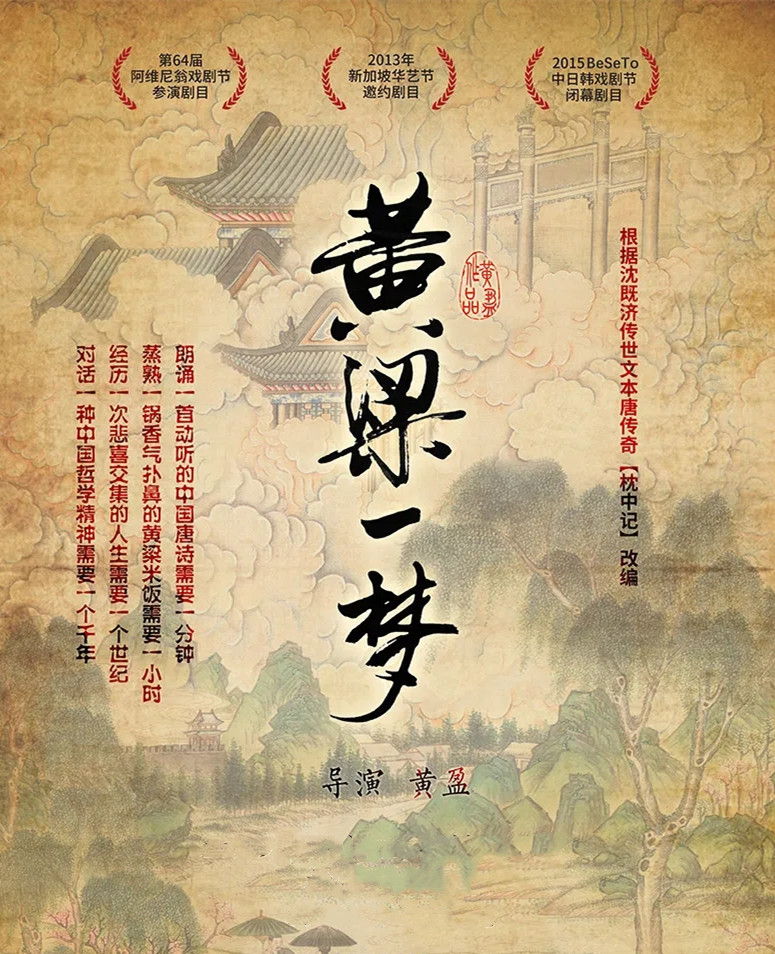 第64届
阿维尼翁戏剧节
参演剧目
2013年
新加坡华艺节
邀约剧目
2015BeSeTo
中日韩戏剧节
闭幕剧目
黄粱一梦
黄盈
作品
根据沈既济传世文本唐传奇【枕中记】改编
朗诵一首动听的中国唐诗需要一分钟
蒸熟一锅香气扑鼻的黄粱米饭需要一小时
经历一次悲喜交集的人生需要一个世纪
对话一种中国哲学精神需要一个千年
导演 黄盈